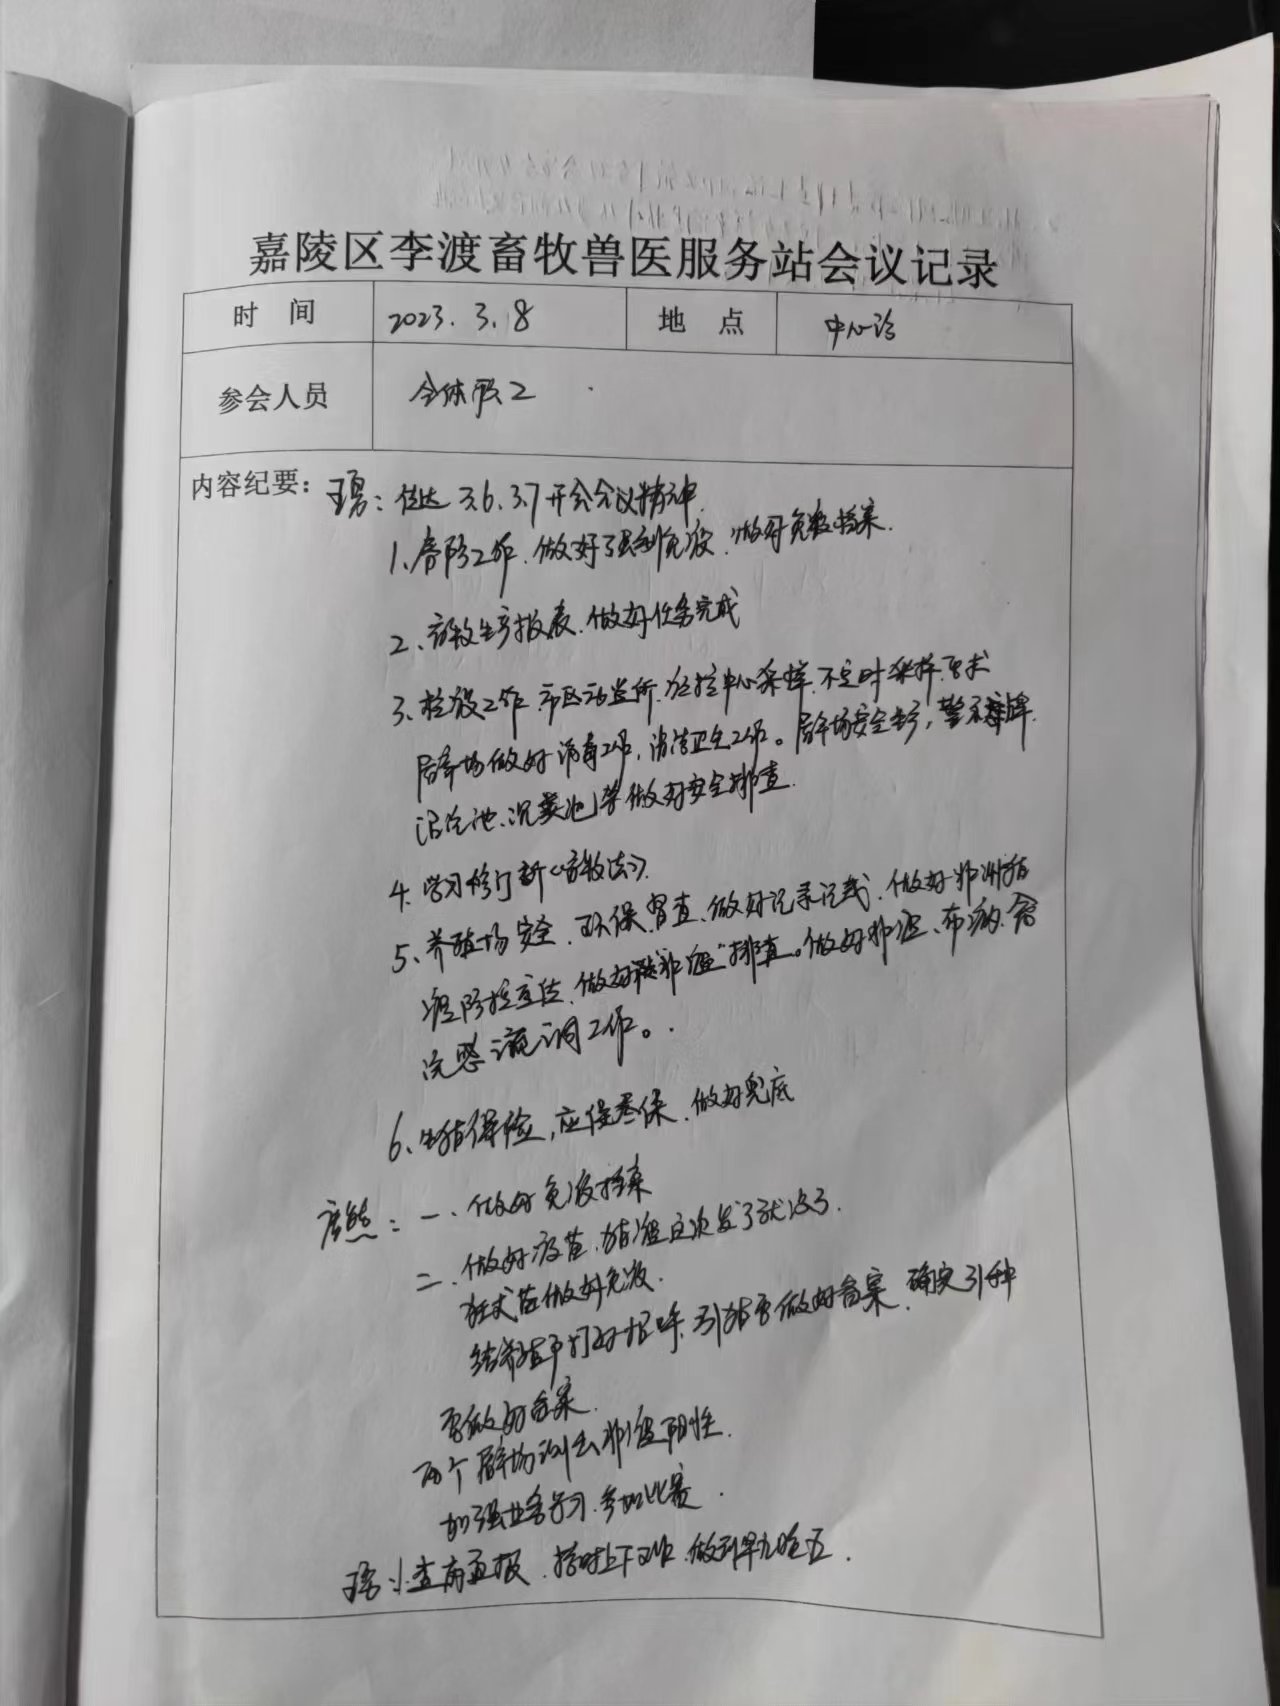 嘉陵区李渡畜牧兽医服务站会议记录
时 间 2023.3.8 地 点 中心站
参会人员 全体职工
内容纪要：王勇：传达3.6.3.7开会会议精神.
1、春防工作.做好强制免疫.做好免疫档案.
2、畜牧生产报表.做好任务完成
3、检疫工作.市区动监所.疫控中心采样.不定时采样.要求
屠宰场做好消毒工作，清洁卫生工作。屠宰场安全生产，警示牌.
沼气池、沉粪池等做好安全排查.
4、学习修订新《畜牧法》.
5、养殖场安全.环保督查.做好记录记载.做好非洲猪
瘟防控宣传.做好“非瘟”排查。做好非瘟、布病、禽
流感流调工作。
6、生猪保险，应保尽保.做好兜底
：一、做好免疫档案
二、做好疫苗.猪瘟这次发了就没了.
狂犬苗做好免疫.
给养殖户打好招呼.引猪要做好备案.确实引种
要做好备案.
两个屠宰场测出非瘟阳性.
加强业务学习.参加比赛.
王勇：1.查岗通报.按时上下班.做到早九晚五.